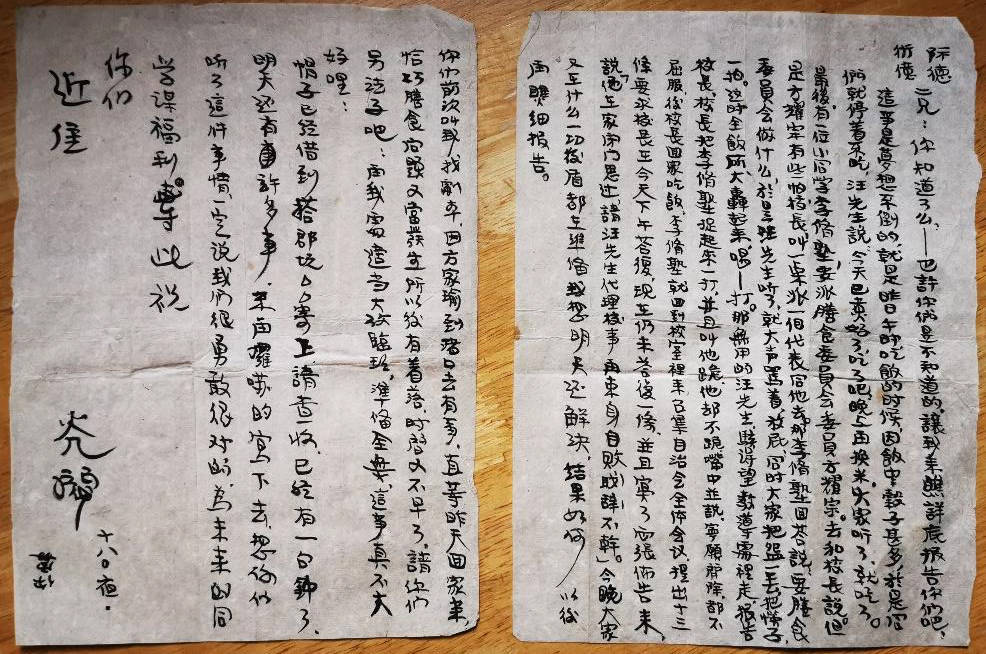 阶德
衍德 二兄：你知道了么，——也許你俩是不知道的，讓我来照詳底报告你們吧，
這事是夢想不倒的，就是昨日午時吃飯的时候，因飯中穀子甚多，於是同
們就停着不吃，汪先生說：今天已卖好了，吃了吧，晚上再换米，大家听了，就吃了。
最後，有一位小同学李脩塾，要派膳食委員会委員方耀宗。去和校長說，但
是方耀宗有些怕校長叫一桌派一個代表同他去，那李脩塾回答說，要膳食
委員会做什么，於是汪先生听了，就大声罵着，放屁，同时大家把盌一丢把筷子
一拍。這时全飯所大轟起来，喝——打。那無用的汪先生，望教導處裡走，报告
校長，校長把李脩塾捉起来一打，並且叫他跪，他却不跪，嘴中並說，寧願開除，都不
屈服，後校長回家吃飯，李脩塾就回到校室裡来，召集自治会全体会议，提出十三
條要求，校長在今天下午答復，现在仍未答復一條，並且寫了两張佈告来，
說他在家闭门思过，請汪先生代理校事，再束身自敗，敗辞不幹。今晚大家
又在什么一切後盾都在準備，我想明天还解決，結果如何，以後
再賜细报告。
你們前次叫我找剃本，因方家瑜到
口去有事，直等昨天回家来，
恰巧膳食问題又當發生，所以没有着落，时启又不早了，請你們
另法子吧：
好哩：
帽子已经借到，搭郡坑
寄上，請查收，已经有一句鈡了，
明天还有許多事，不再囉嗦的寫下去，想你們
听了這件事情，一定說我們很勇敢很对的，為未来的同
学谋福利，專此祝
你們
近佳
炎錫
十八日夜．